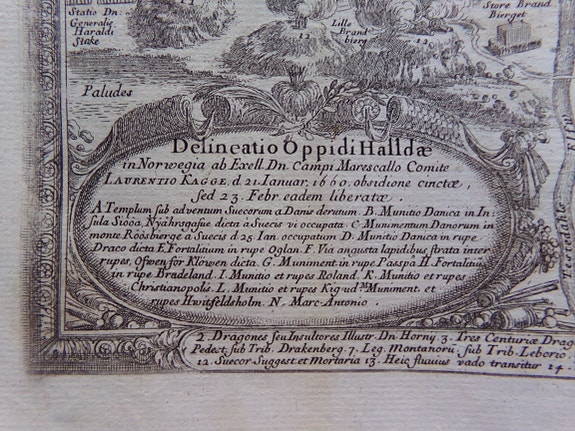 Statio Dn:
Generalis
Haraldi
Stake
Lille
Brand
bierg
12
13
Store Brand
Bierget
Paludes
Elfw
Delineatio Oppidi Halldæ
in Norwegia ab Excell. Dn. Campi Marescallo Comite
LAURENTIO KAGGE. d 21. Ianuar. 1660. obsidione cinctæ,
sed 23. Febr eadem liberatæ.
A Templum sub adventum Suecorum a Danis derutum. B. Munitio Danica in In=
sula Siösa, Nyährsgafue dicta à Suecis vi occupata. C Munimentum Danorum in
monte Röösberge à Suecis d 25 Ian. occupatum D. Munitio Danica in rupe
Draco dicta E. Fortalitium in rupe Oglan. F. Via angusta lapidibus strata inter
rupes, Ofwen för Klöwen dicta. G. Muniment. in rupe Passpä H. Fortalitiū
in rupe Bradeland. I. Munitio et rupes Roland. K. Munitio et rupes
Christianopolis. L. Munitio et rupes Kig-ud M. Muniment. et
rupes Hwitfeldsholm. N. Marc-Antonio.
2. Dragones seu Insultores Illustr. Dn. Horny 3. Tres Centuriæ Drag
Pedest. sub Trib. Drakenberg. 7. Leg. Montanorū sub Trib. Leborio.
12. Suecor Suggest. et Mortaria 13. Heic fluuius vado transitur 14.